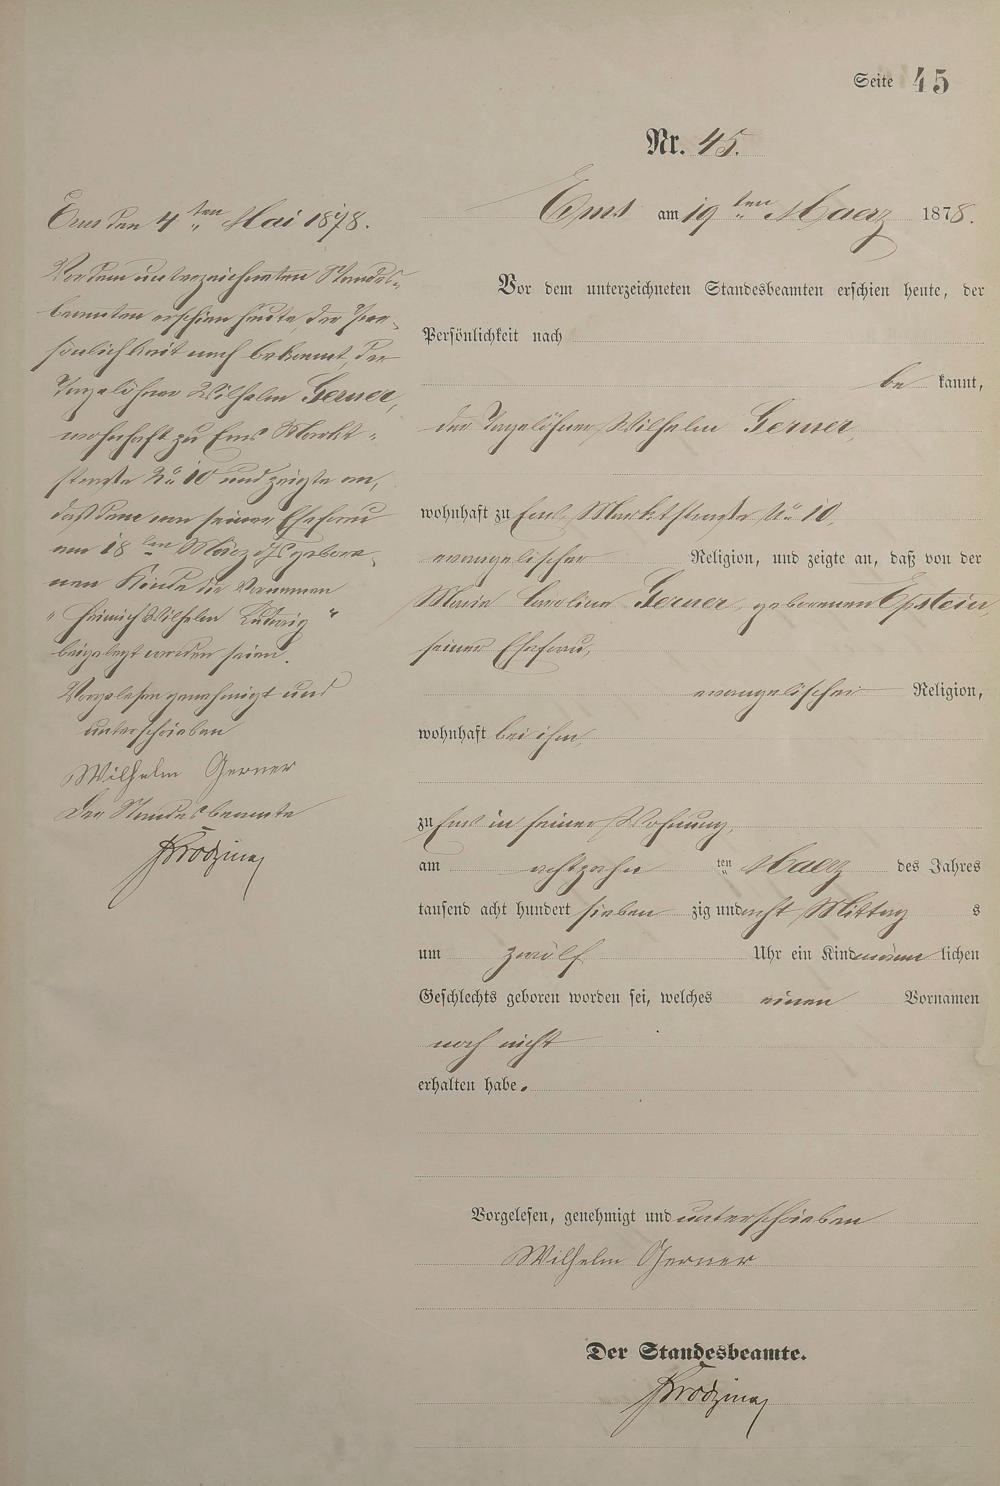 Seite 45
Nr. 45.
Ems am 19 ten Maerz 1878.
Vor dem unterzeichneten Standesbeamten erschien heute, der
Persönlichkeit nach
be kannt,
der Tagelöhner Wilhelm Gerner,
wohnhaft zu Ems, Marktstraße No 10,
evangelischer Religion, und zeigte an, daß von der
Marie Caroline Gerner, geborenen Epstein,
seiner Ehefrau,
evangelischer Religion,
wohnhaft bei ihm,
zu Ems in seiner Wohnung,
am achtzehn ten Maerz des Jahres
tausend acht hundert sieben zig und acht Mittag s
um zwölf Uhr ein Kind männ lichen
Geschlechts geboren worden sei, welches einen Vornamen
noch nicht
erhalten habe.
Vorgelesen, genehmigt und unterschrieben
Wilhelm Gerner
Der Standesbeamte.
Ems den 4 ten Mai 1878.
Vor dem unterzeichneten Standes-
beamten erschien heute, der Per-
sönlichkeit nach bekannt, der
Tagelöhner Wilhelm Gerner,
wohnhaft zu Ems Markt-
straße No 10 und zeigte an,
daß dem von seiner Ehefrau
am 18 ten März gebore-
nen Kinde die Vornamen
"Heinrich Wilhelm Ludwig"
beigelegt worden seien.
Vorgelesen genehmigt und
unterschrieben
Wilhelm Gerner
Der Standesbeamte